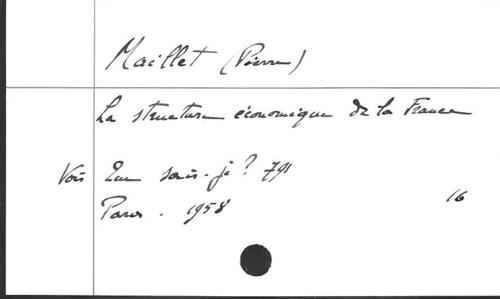 Maillet (Pierre)
La structure économique de la France
Vois Que sais-je? 791
Paris. 1958 16